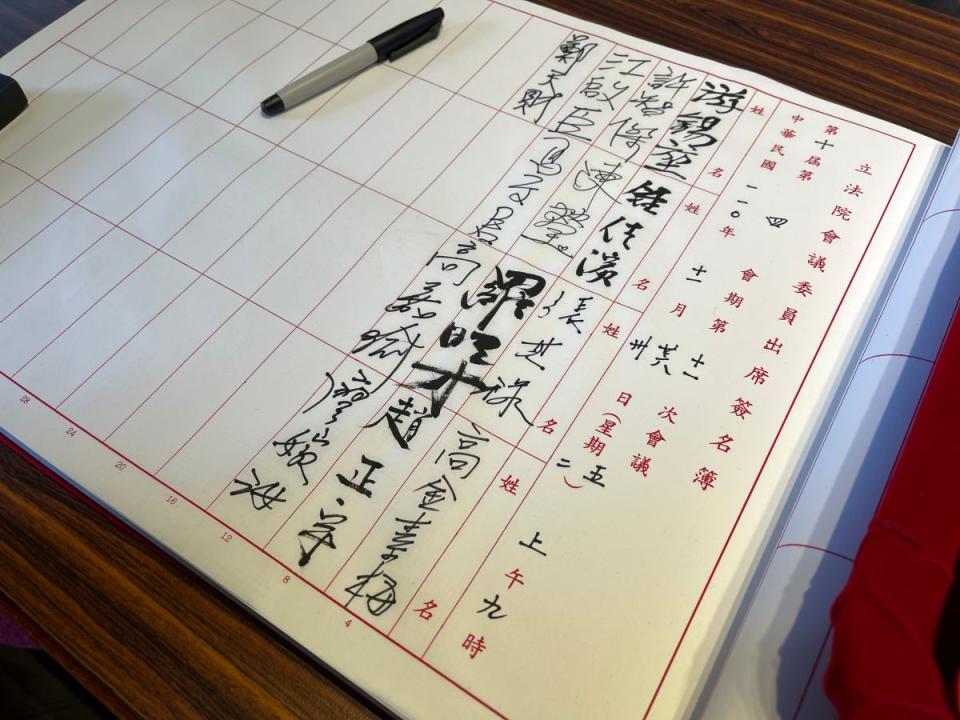 立法院會議委員出席簽名簿
第十屆第四會期第十一次會議
中華民國一一〇年十一月廿六卅日(星期五二)上午九時
姓名 姓名 姓名 姓名
游錫堃 鍾佳濱 張其祿 高金素梅
4
許智傑 陳瑩 羅明才 趙正宇
8
江啟臣 馬文君 高嘉瑜 廖婉汝
12
鄭天財
16
20
24
28